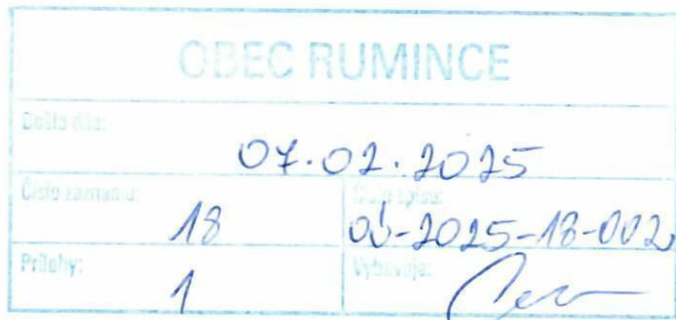 OBEC RUMINCE
Došlo dňa:
07.02.2025
Číslo záznamu: Číslo spisu:
18 OÚ-2025-18-002
Prílohy: Vybavuje:
1